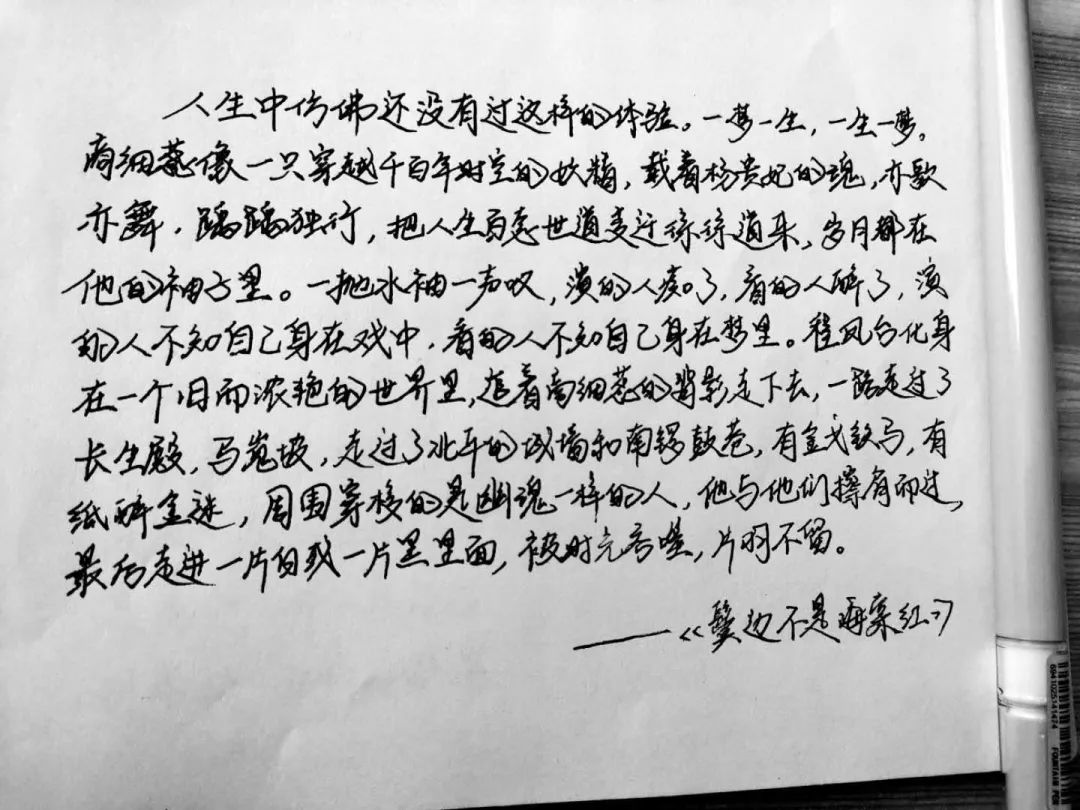 人生中仿佛还没有过这样的体验。一梦一生，一生一梦。
商细蕊像一只穿越千百年时空的妖精，载着杨贵妃的魂，亦歌
亦舞，踽踽独行，把人生百态世道变迁徐徐道来，岁月都在
他的袖子里。一抛水袖一声叹，演的人痴了，看的人醉了，演
的人不知自己身在戏中，看的人不知自己身在梦里。程凤台化身
在一个旧而浓艳的世界里，追着商细蕊的背影走下去，一路走过了
长生殿，马嵬坡，走过了北平的城墙和南锣鼓巷，有金戈铁马，有
纸醉金迷，周围穿梭的是幽魂一样的人，他与他们擦肩而过，
最后走进一片白或一片黑里面，被时光吞噬，片羽不留。
——《鬓边不是海棠红》
6941025141474
FOUNTAIN PEN